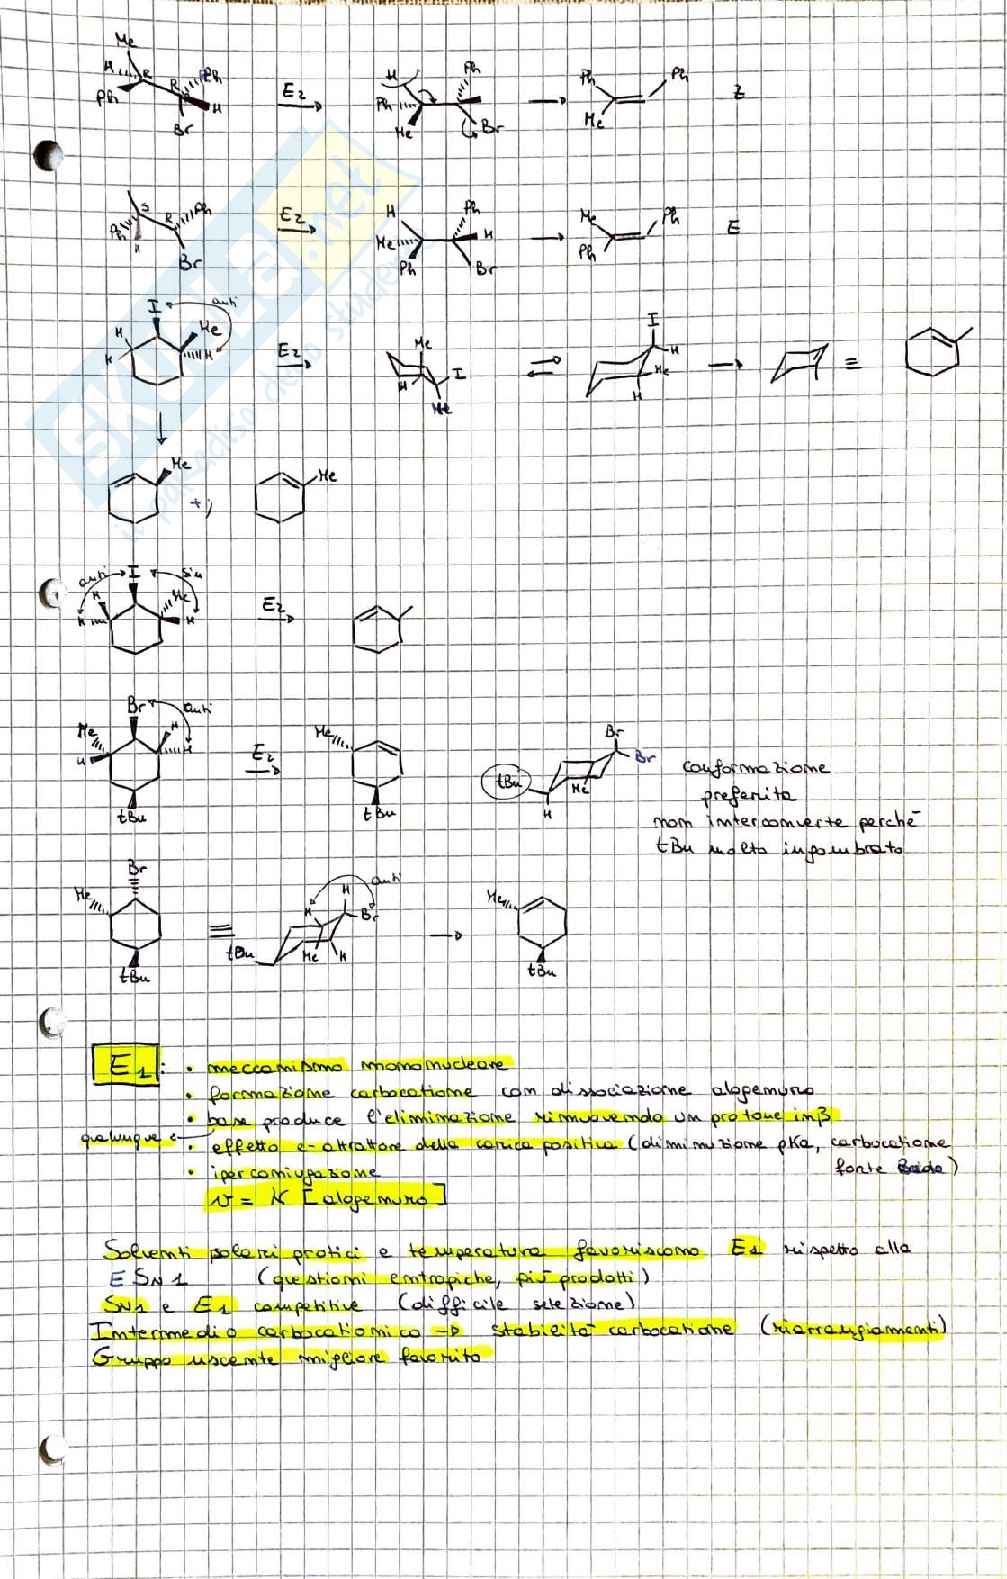 Me
H
R
R
Ph
Ph
H
Br
E2
H
Ph
Ph
Me
Br
Ph
Ph
Me
Z
S
R
Ph
Ph
H
Br
E2
H
Ph
Me
H
Ph
Br
Me
Ph
Ph
E
I
anti
H
H
Me
H
E2
Me
I
H
Me
I
H
Me
H
Me
+
Me
anti
I
sin
H
H
Me
H
E2
Br
anti
Me
H
H
H
tBu
E2
Me
tBu
Br
Br
tBu
Me
H
conformazione
preferita
non interconverte perché
tBu molto ingombrato
Br
Me
tBu
anti
H
H
Br
tBu
Me
H
Me
tBu
E1: • meccanismo mononucleare
• formazione carbocatione con dissociazione alogenuro
• base produce l'eliminazione rimuovendo un protone in β
qualunque
• effetto e- attrattore della carica positiva (diminuzione pKa, carbocatione
forte acido)
• iperconiugazione
v = K [alogenuro]
Solventi polari protici e temperatura favoriscono E1 rispetto alla
E SN1 (questioni entropiche, più prodotti)
SN1 e E1 competitive (difficile selezione)
Intermedio carbocationico → stabilità carbocatione (riarrangiamenti)
Gruppo uscente migliore favorito
SKUOLA.net
il paradiso dello studente